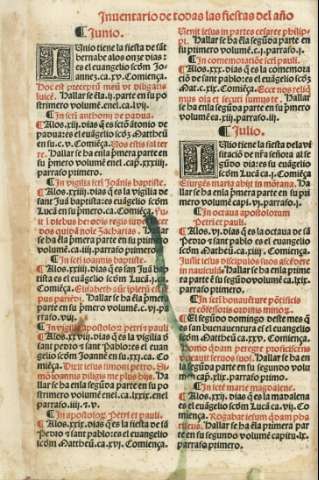 Inuentario de todas las fiestas del año
Junio.
IUnio tiene la fiesta de sāt
bernabe alos onze dias:
es el euangelio scōm Joā
nnez.ca.xv. Comiença.
Hoc est preceptū meū vt diligatis
inuicē. Hallar se ha ēla.ij. parte en po
primero volumē.enel.ca.lvij.
In scti anthonij de padua.
Alos.xiij. dias q̄ es sctō ātonio de
padua:es el euāgelio scōm Mattheū
en su.ca.v. Comiēça. Vos estis sal ter
re. Hallar se ha enla primera parte en
su primero volumē enel.cap.xxxiij.
parrafo primero.
In vigilia scti Johānis baptiste.
Alos.xxiij. dias q̄ es la vigilia de
sant Juā baptista:es el euāgelio scōm
Luca en su primero.ca. Comiēça. Fu
it i diebus
dos quidā noīe Zacharias. Hallar
se ha ēla p̄mera parte en su p̄mero vo
lumē.ca.iij. parrafo primero.
In scti ioannis baptiste.
Alos.xxiiij. dias q̄ es san Juā bap
tista es el euangelio scōm Lucā.j.ca.
Comiença.
pus pariēdi. Hallar se ha enla prime
ra parte en su primero volumē.ca.vj. par
rafo.vj.
In vigilia apostolor̄ petri z pauli
Alos.xxviij. dias q̄ es la vigilia de
sant pedro z sant pablo:es el euange
lio scōm Joannē z es en su.xxj.ca. Co
miēça. Dixit iesus simoni petro. Si
mō ioannis diligis me plus his. Hal
lar se ha enla segūda parte en su po
mero volumē.enel.ca.lxxix.enel
parrafo.iiij. z.v.
In apostolor̄ petri et pauli.
Alos.xxix. dias q̄ es la fiesta de sā
pedro z sant pablo:es el euangelio
scōm Mattheū en su.xvj.ca. Comiēça
Venit iesus in partes cesaree philip
pi. Hallar se ha ēla segūda parte en su
primero volumē.c.j. parrafo.ij.
In comemoratiōe scti pauli.
Alos.xxx. dias q̄ es la comemoraci
ō de sant pablo:es el euangelio scōm
Mat.c.xix. Comiēça. Ecce nos reliq
mus oīa et secuti sumus te. Hallar se
ha enla segūda parte en su p̄mero vo
lumē.ca.xl. parrafo primero.
Julio.
IUlio tiene la fiesta dela vi
sitaciō de nr̄a señora al se
gūdo dia:es su euāgelio
scōm Lucā ca.j. Comiēça.
Exurgēs maria abijt in mōtana. Ha
llar se ha enla primera parte en su pri
mero volumē capi.v. parrafo.j.
In octaua apostolorum
petri et pauli.
Alos.vj. dias q̄ es la octaua de sā
pedro z sant pablo:es su euāgelio sc̄d
Matheo en el ca.xiiij. Comiēça.
Jussit iesus discipulos suos ascēdere
in nauiculā. Hallar se ha enla prime
ra parte en su segūdo volumen.ca.ij.
parrafo primero.
In scti bonauēture pōtificis et
cōfessoris ordinis minor̄.
El segundo domingo deste mes q̄
es san buenauentura es el euangelio
scōm Mattheū en su.xxv.ca. Comiēça.
Homo quidam peregre proficiscens
vocauit seruos suos. Hallar se ha enla
segūda parte en su primero volu
mē.cap.xlix. parrafo primo.
In scte marie magdalene.
Alos.xxij. dias q̄ es la madalena
es el euāgelio scōm Luca.ca.vij. Co
miença. Rogabat iesum quidam pha
riseus. Hallar se ha enla primera par
te en su segundo volumē capitulo.lx.
parrafo primero.